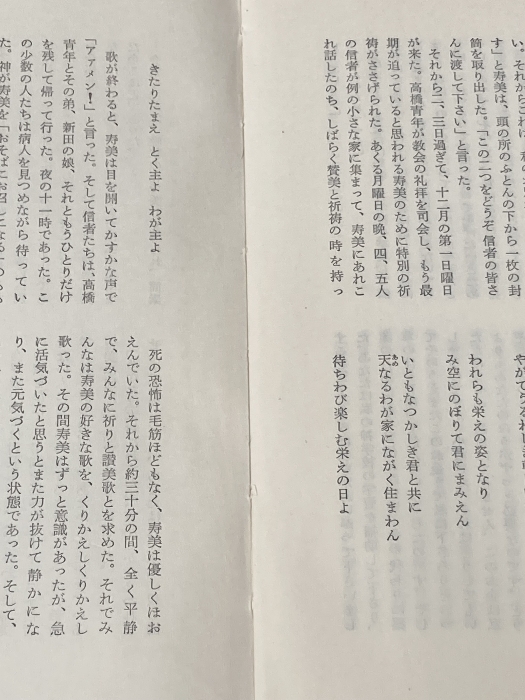 い。それから
す」と寿美は、頭の所のふとんの下から一枚の封
筒を取り出した。「この二つをどうぞ信者の皆さ
んに渡して下さい」と言った。
それから二、三日過ぎて、十二月の第一日曜日
が来た。高橋青年が教会の礼拝を司会し、もう最
期が迫っていると思われる寿美のために特別の祈
祷がささげられた。あくる月曜日の晩、四、五人
の信者が例の小さな家に集まって、寿美にあれこ
れ話したのち、しばらく賛美と祈祷の時を持っ
われらも栄えの姿となり
み空にのぼりて君にまみえん
いともなつかしき君と共に
天なるわが家にながく住まわん
待ちわび楽しむ栄えの日よ
きたりたまえ とく主よ わが主よ
歌が終わると、寿美は目を開いてかすかな声で
「アァメン!」と言った。そして信者たちは、高橋
青年とその弟、新田の娘、それともうひとりだけ
を残して帰って行った。夜の十一時であった。こ
の少数の人たちは病人を見つめながら待ってい
た。神が寿美を「おそばにお召しになる
死の恐怖は毛筋ほどもなく、寿美は優しくほお
えんでいた。それから約三十分の間、全く平静
で、みんなに祈りと讃美歌とを求めた。それでみ
んなは寿美の好きな歌を、くりかえしくりかえし
歌った。その間寿美はずっと意識があったが、急
に活気づいたと思うとまた力が抜けて静かにな
り、また元気づくという状態であった。そして、